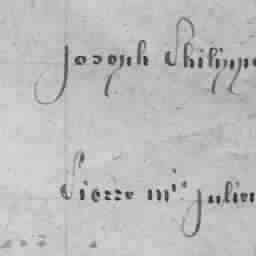 Joseph Philippe
Pierre m^ie Julien